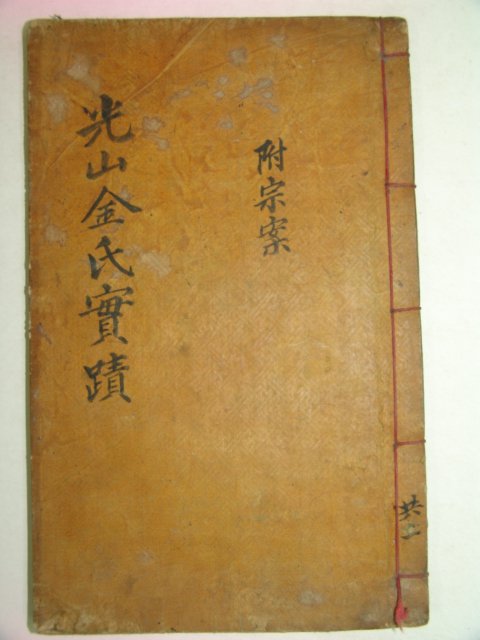 光山金氏實蹟
附宗案
共二